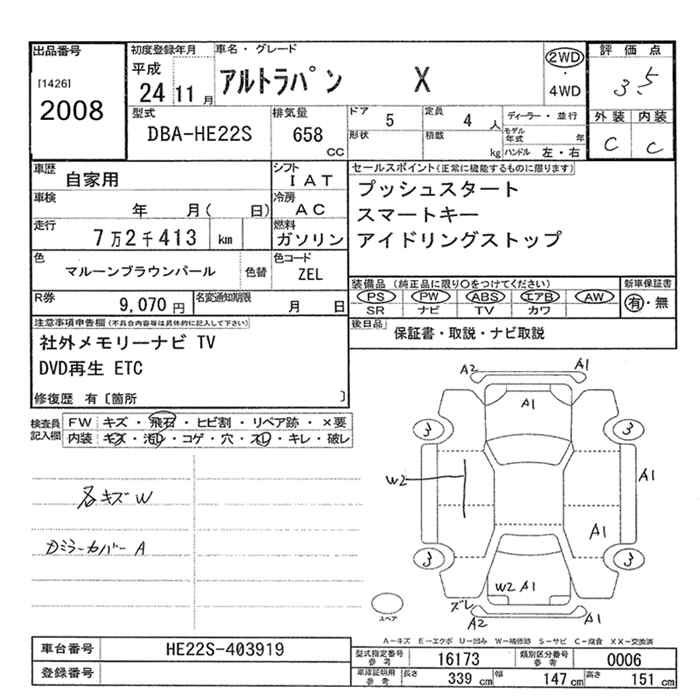 出品番号
[1426]
2008
初度登録年月
平成
24 11 月
車名・グレード
アルトラパン X
2WD
・
4WD
評価点
3.5
外装 内装
C C
型式
DBA-HE22S
排気量
658
CC
ドア
5
定員
4 人
形状
積載
kg
ディーラー・並行
モデル年式 年
ハンドル 左・右
車歴
自家用
シフト
I A T
車検
年 月( 日)
冷房
A C
走行
7万2千413 km
燃料
ガソリン
色
マルーンブラウンパール
色替
色コード
ZEL
R券
9,070 円
名変通知期限
月 日
セールスポイント(正常に機能するものに限ります)
プッシュスタート
スマートキー
アイドリングストップ
装備品 (純正品に限り○をつけてください)
PS PW ABS エアB AW
SR ナビ TV カワ
新車保証書
有・無
後日品
保証書・取説・ナビ取説
注意事項申告欄(不具合内容等は具体的に記入して下さい)
社外メモリーナビ TV
DVD再生 ETC
修復歴 有〔箇所 〕
検査員
記入欄
FW キズ・飛石・ヒビ割・リペア跡・×要
内装 キズ・汚れ・コゲ・穴・スレ・キレ・破レ
各キズW
カミラーカバー A
A2 A1
A1
3 3
W2
A1
A1
3 3
W2 A1
ズレ
A2 A1
スペア
A-キズ E-エクボ U-凹み W-補修跡 S-サビ C-腐食 XX-交換済
車台番号
HE22S-403919
登録番号
型式指定番号
参考
16173
類別区分番号
参考
0006
車庫証明用
参考
長さ 339 cm 幅 147 cm 高さ 151 cm